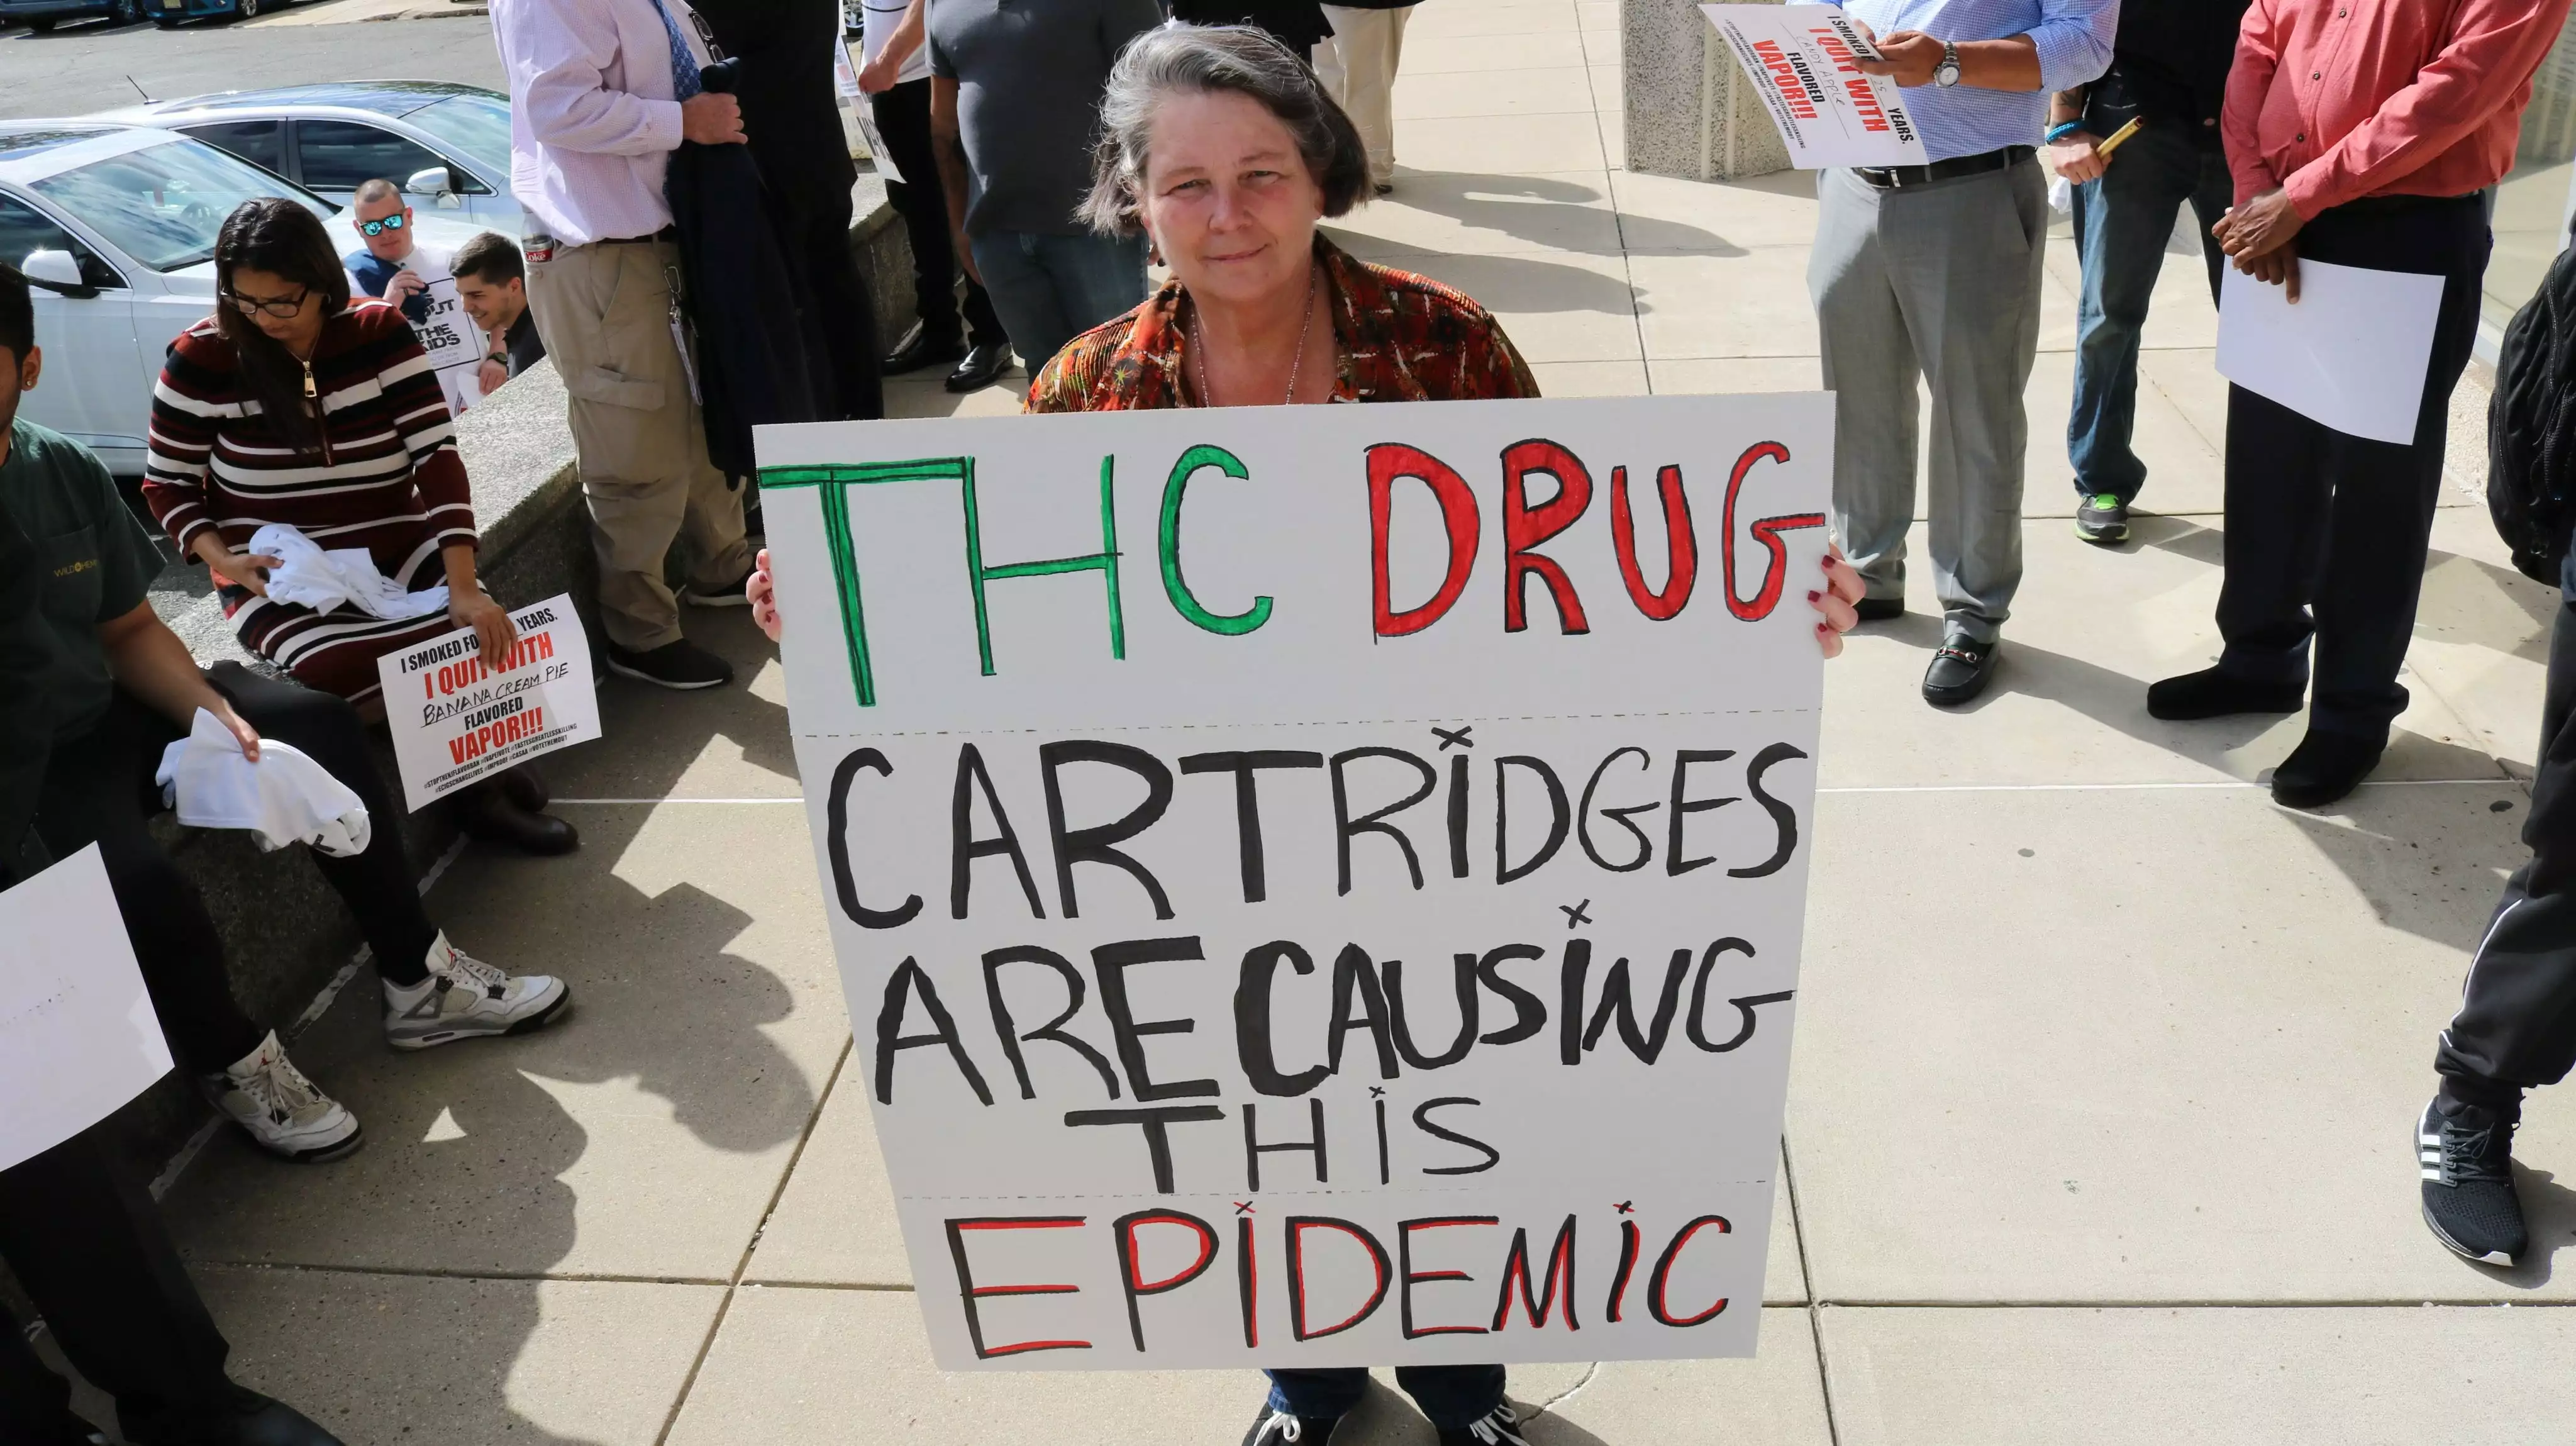 THC DRUG
CARTRIDGES
ARE CAUSING
THIS
EPIDEMIC
I SMOKED FO YEARS.
I QUIT WITH
BANANA CREAM PIE
FLAVORED
VAPOR!!!
I SMOKED 25 YEARS.
I QUIT WITH
CANDY APPLE
FLAVORED
VAPOR!!!
THE
KIDS
Coke